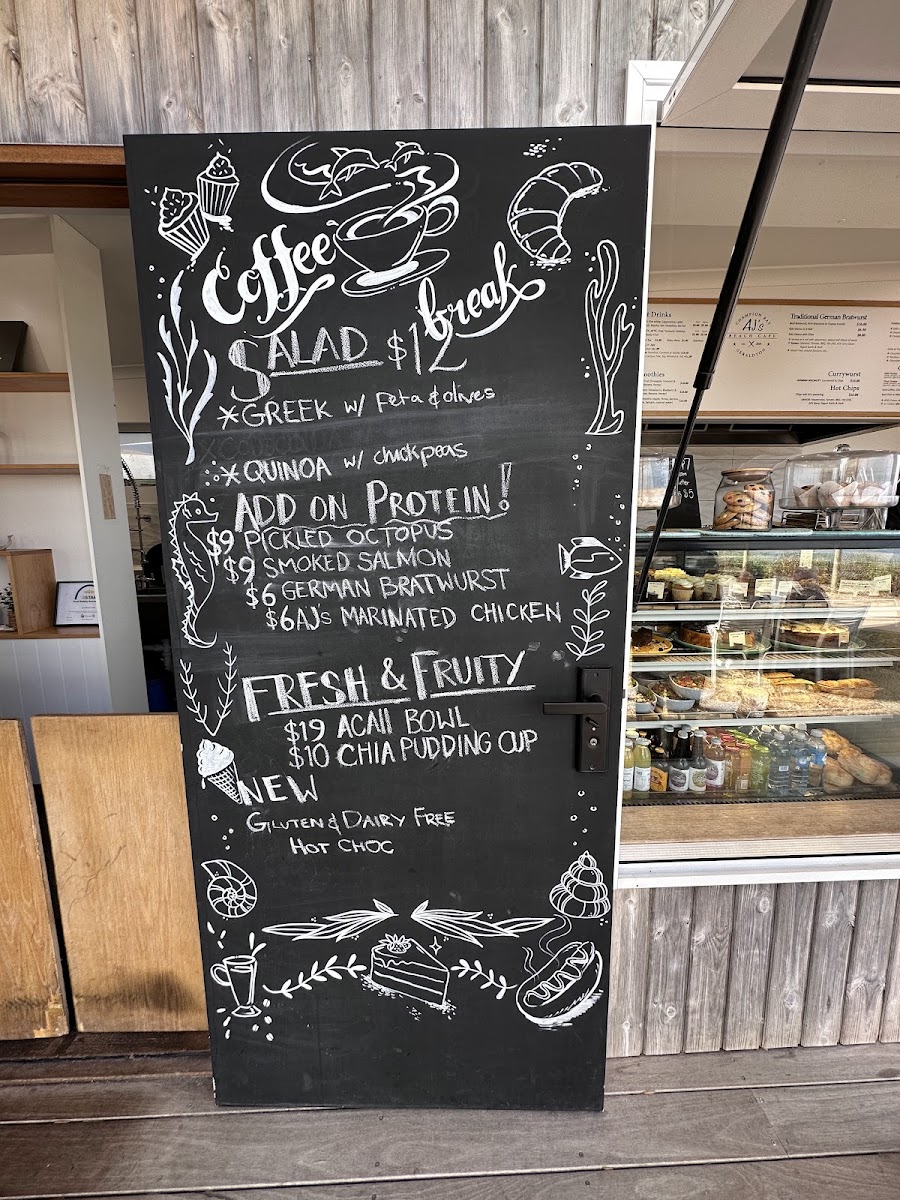 Coffee
break
SALAD $12
*GREEK w/ feta & olives
*QUINOA w/ chickpeas
ADD ON PROTEIN!
$9 PICKLED OCTOPUS
$9 SMOKED SALMON
$6 GERMAN BRATWURST
$6 AJ's MARINATED CHICKEN
FRESH & FRUITY
$19 ACAII BOWL
$10 CHIA PUDDING CUP
NEW
GLUTEN & DAIRY FREE
HOT CHOC
Drinks
CHAMPION BAY
AJ's
BEACH CAFE
GERALDTON
Traditional German Bratwurst
Currywurst
Hot Chips
$5